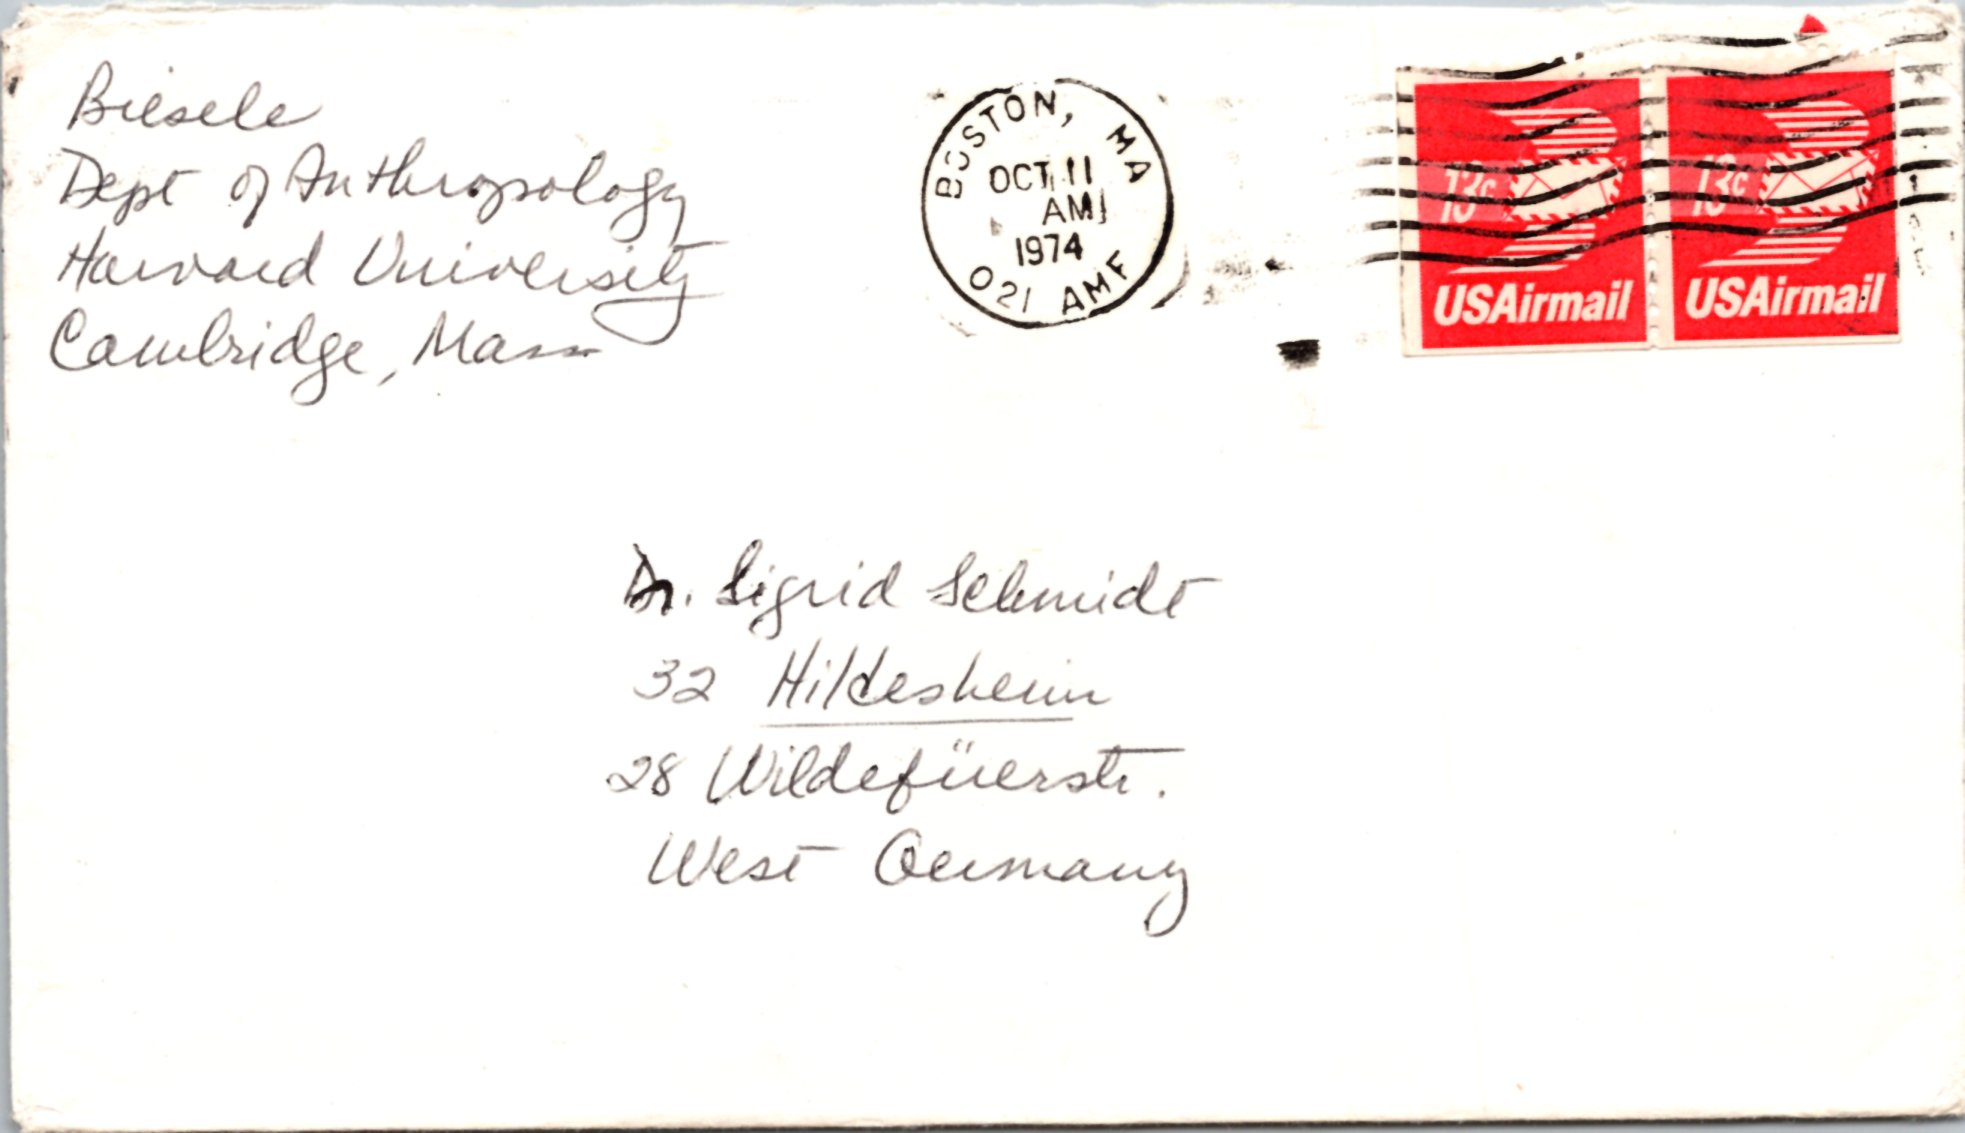 Biesele
Dept of Anthropology
Harvard University
Cambridge, Mass
BOSTON, MA
OCT 11
AM
1974
021 AMF
13c
USAirmail
13c
USAirmail
Dr. Sigrid Schmidt
32 Hildesheim
28 Wildefüerstr.
West Germany